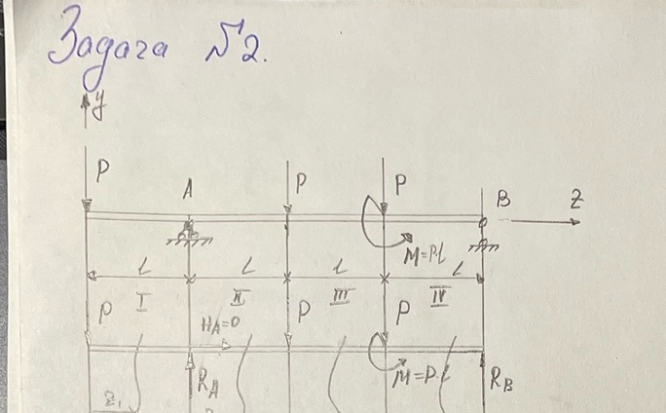 Задача №2.
y
P A P P B z
M=P·l
l l l l
I II III IV
P P P
HA=0
RA M=P·l RB
z₁